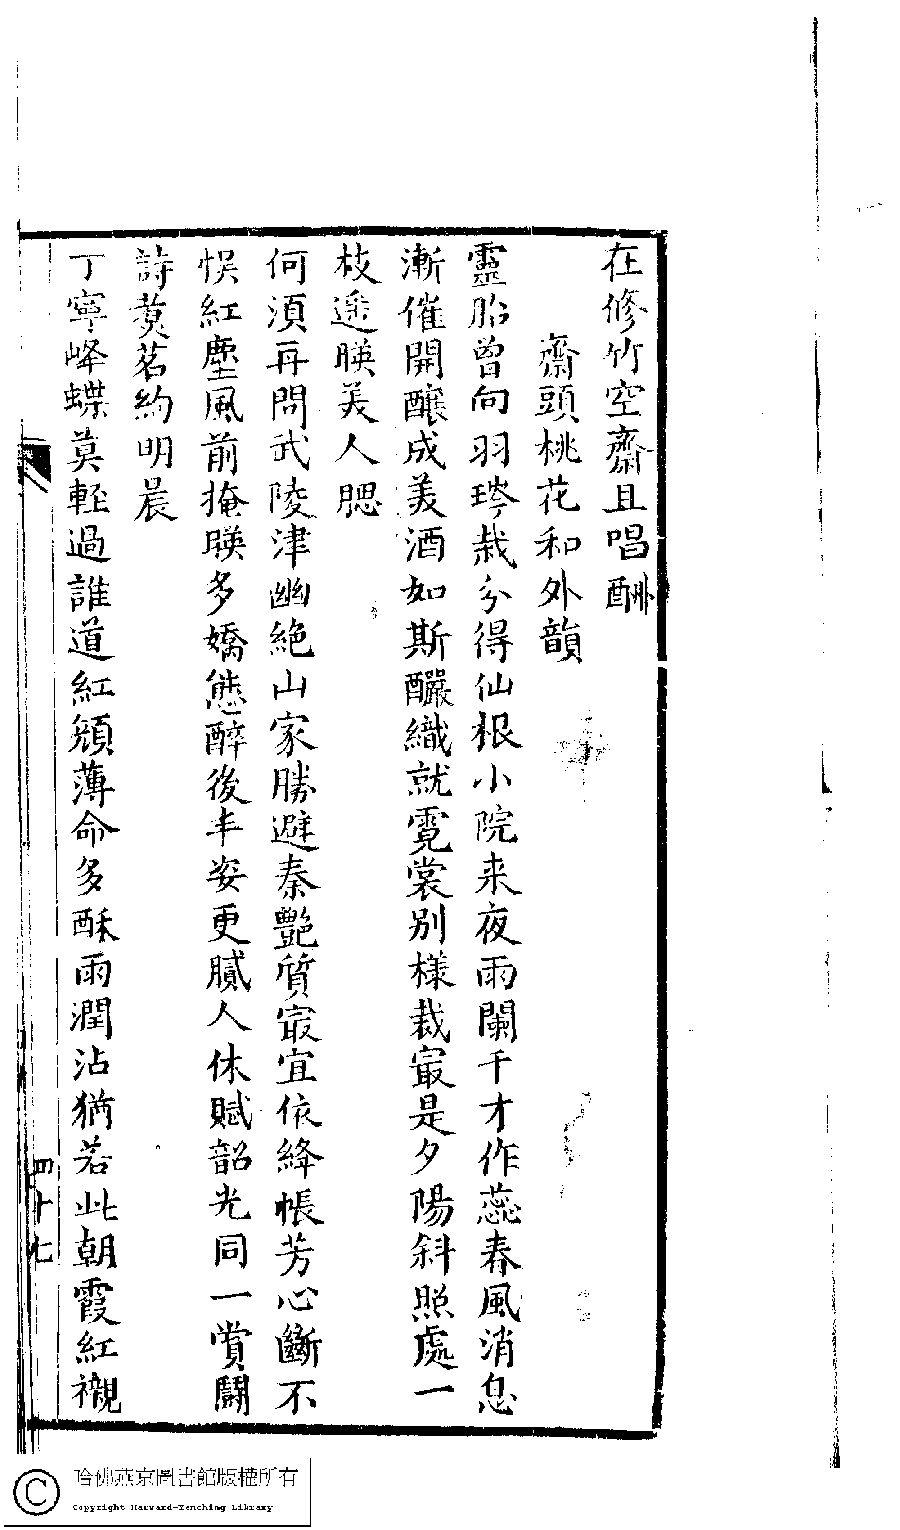 在修竹空齋且唱酬
齋頭桃花和外韻
靈胎曾向羽琌栽分得仙根小院来夜雨闌干才作蕊春風消息
漸催開醸成美酒如斯釅織就霓裳別様裁㝡是夕陽斜照處一
枝遥暎美人腮
何須再問武陵津幽絶山家勝避秦艷質㝡宜依絳帳芳心斷不
悮紅塵風前掩暎多嬌態醉後丰姿更膩人休賦韶光同一賞鬬
詩煑茗約明晨
丁寧蜂蝶莫輕過誰道紅顔薄命多酥雨潤沾猶若此朝霞紅襯
四十七
哈佛燕京圖書館版權所有
Copyright Harvard-Yenching Library